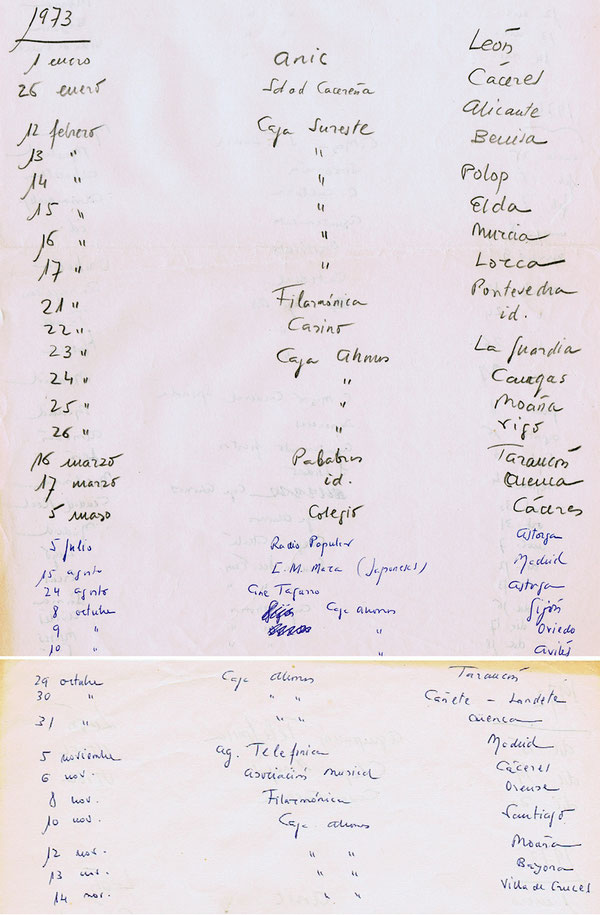 1973
1 enero anic León
26 enero Sdad Cacereña Cáceres
Alicante
12 febrero Caja Sureste Benisa
13 " "
14 " " Polop
15 " " Elda
16 " " Murcia
17 " " Lorca
21 " Filarmónica Pontevedra
22 " Casino id.
23 " Caja Ahorros La Guardia
24 " " Cangas
25 " " Moaña
26 " " Vigo
16 marzo Palabras Tarancón
17 marzo id. Cuenca
5 mayo Colegio Cáceres
5 julio Radio Popular Astorga
15 agosto C.M. Mara (Japonesas) Madrid
24 agosto Cine Tagarro Astorga
8 octubre Caja ahorros Gijón
9 " " Oviedo
10 " " Avilés
29 octubre Caja Ahorros Tarancón
30 " " " Cañete - Landete
31 " " " Cuenca
5 noviembre ag. Telefónica Madrid
6 nov. asociación musical Cáceres
8 nov. Filarmónica Orense
10 nov. Caja ahorros Santiago
12 nov. " " Moaña
13 nov. " " Bayona
14 nov. " " Villa de Cruces